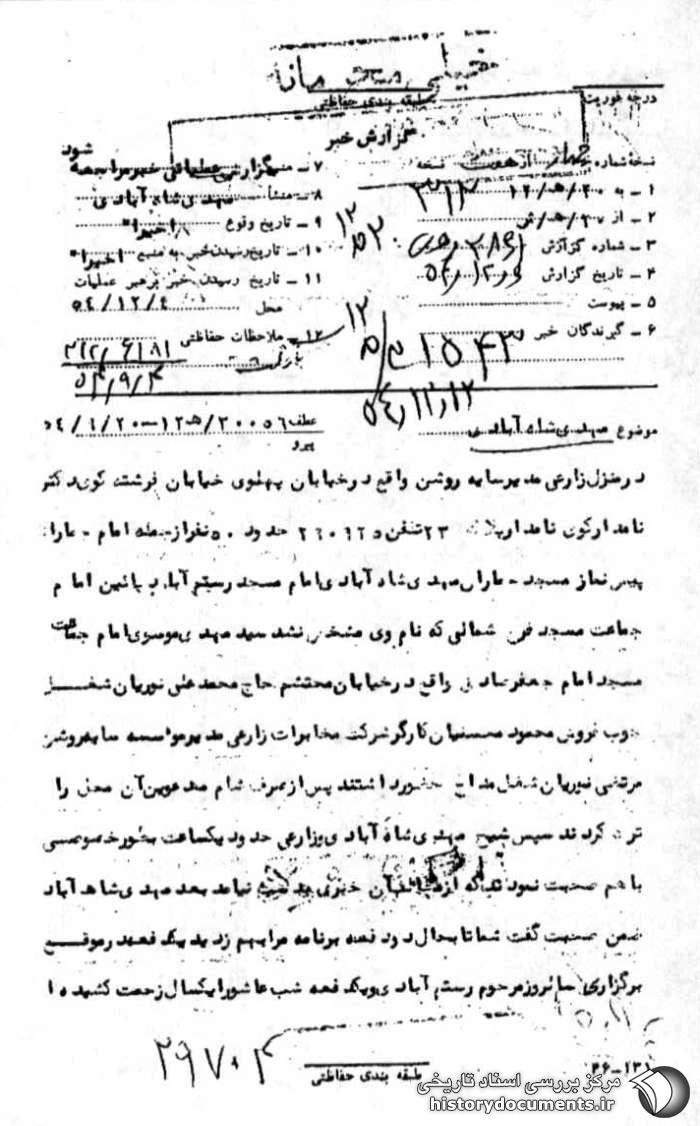 خیلی محرمانه
درجه فوریت
طبقه بندی حفاظتی
گزارش خبر
نسخه شماره چهار از هفت نسخه
۱ – به ۲۰/ﻫ/۱۲ ۳۱۲
۲ – از ۲۰/ﻫ/ش
۳ – شماره گزارش
۴ – تاریخ گزارش
۵ – پیوست
۶ – گیرندگان خبر
شود
۷ – منبع گزارش عملیاتی خبر مراجعه
۸ – منشأ مهدی شاه آبادی
۹ – تاریخ وقوع "اخیرا"
۱۰ – تاریخ رسیدن خبر به منبع "اخیرا"
۱۱ – تاریخ رسیدن خبر برهبر عملیات
محل ۵۴/۱۲/۴
۱۲ – ملاحظات حفاظتی
۳۱۲/۶۱۸۱
۵۴/۹/۴
۱۵۴۳
۵۴/۱۲/۱۲
موضوع مهدی شاه آبادی
عطف ۳۰۰۵۶/ﻫ۱۲–۵۴/۱/۲۰
پیرو
در منزل زارعی مدیر سایه روشن واقع در خیابان پهلوی خیابان فرشته کوی دکتر
نامدار کوی نامدار پلاک ۲۳ تلفن ۲۶۰۹۲۵ حدود ۵۰ نفر از جمله امام جماران
پیش نماز مسجد جماران مهدی شاه آبادی امام مسجد رستم آباد پائین امام
جماعت مسجد شمالی که نام وی مشخص نشد سید مهدی موسوی امام جماعت
مسجد امام جعفر صادق واقع در خیابان محتشم حاج محمد علی نوریان شغل
چوب فروش محمود محسنیان کارگر شرکت مخابرات زارعی مدیر مؤسسه سایه روشن
مرتضی نوریان شغل مداح حضور داشتند پس از صرف شام مدعوین آن محل را
ترک کردند سپس شیخ مهدی شاه آبادی و زارعی حدود یکساعت بطور خصوصی
با هم صحبت نمودند که از خبری بدست نیامد بعد مهدی شاه آباد
ضمن صحبت گفت شما تا بحال دو دفعه برنامه مرا بهم زدید یک دفعه در موقع
برگزاری سالروز مرحوم رستم آبادی و یکدفعه شب عاشورا یکسال زحمت کشیده ا
۲۹۷۰۴
طبقه بندی حفاظتی
۳۶–۱۳۱
مرکز بررسی اسناد تاریخی
historydocuments.ir